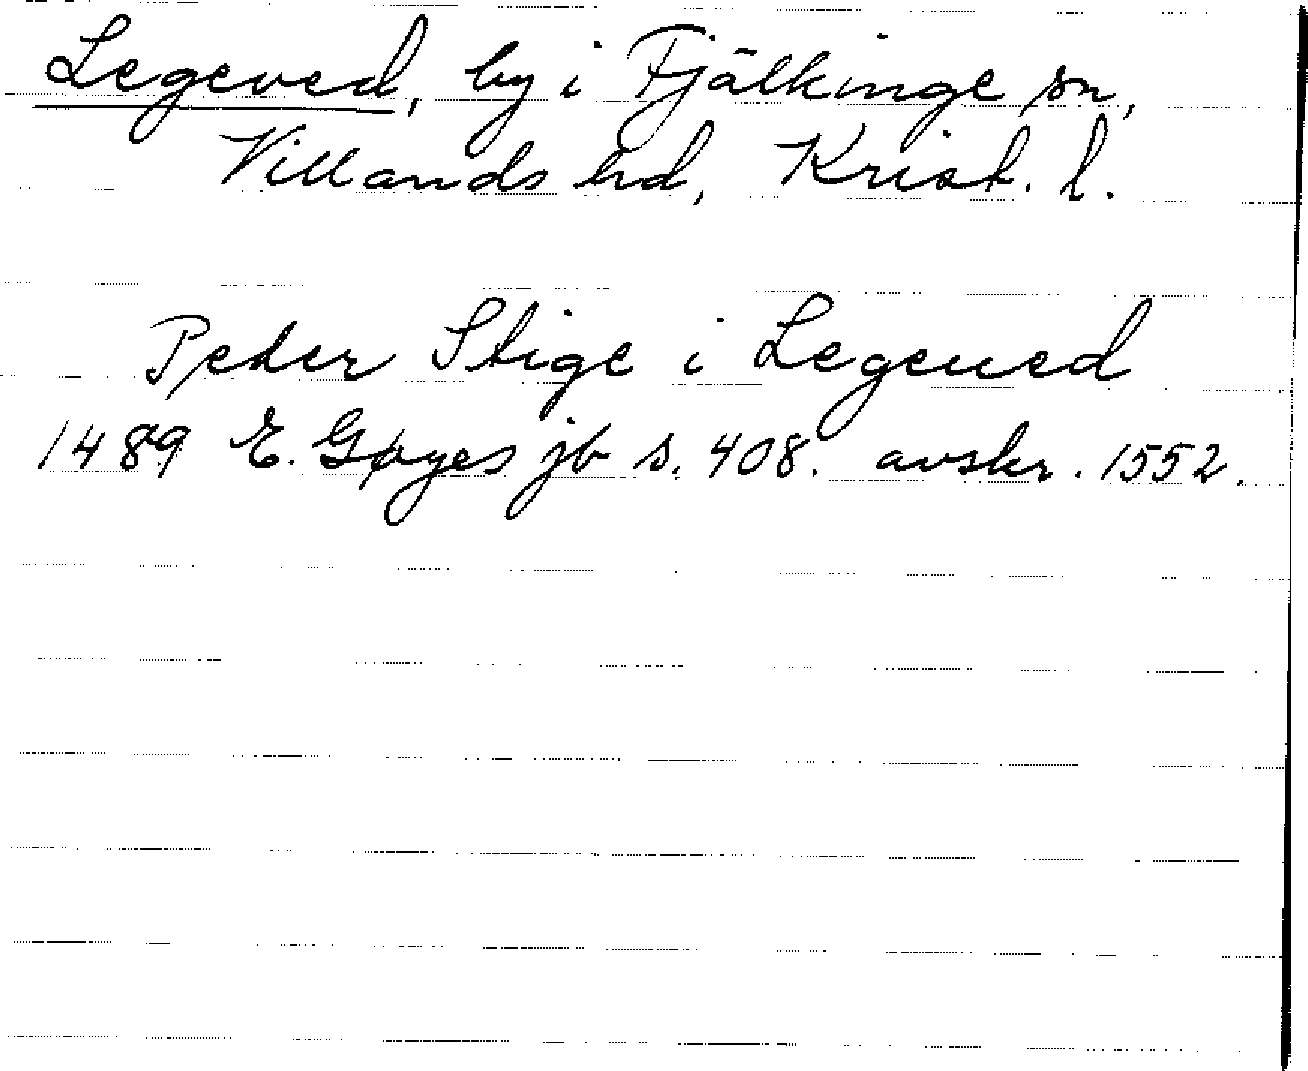 Legeved, by i Fjälkinge sn,
Villands hd, Krist. l.
Peder Stige i Legeued
1489 E. Gøyes jb s. 408. avskr. 1552.